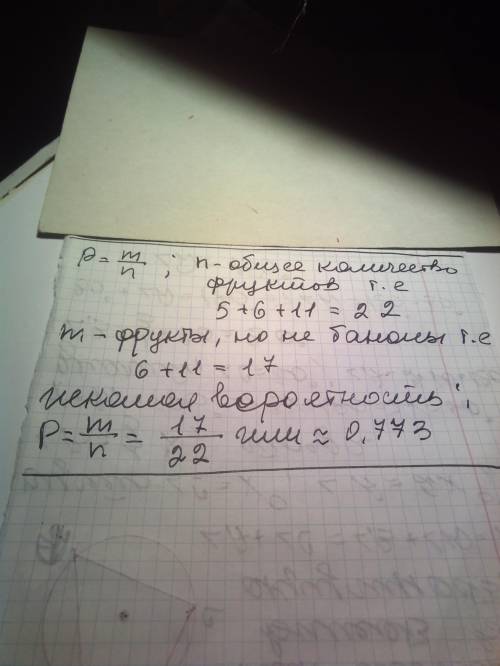 P = m/n ; n - общее количество
фруктов т.е
5+6+11 = 22
m - фрукты, но не бананы т.е
6+11 = 17
искомая вероятность:
P = m/n = 17/22 или ≈ 0,773